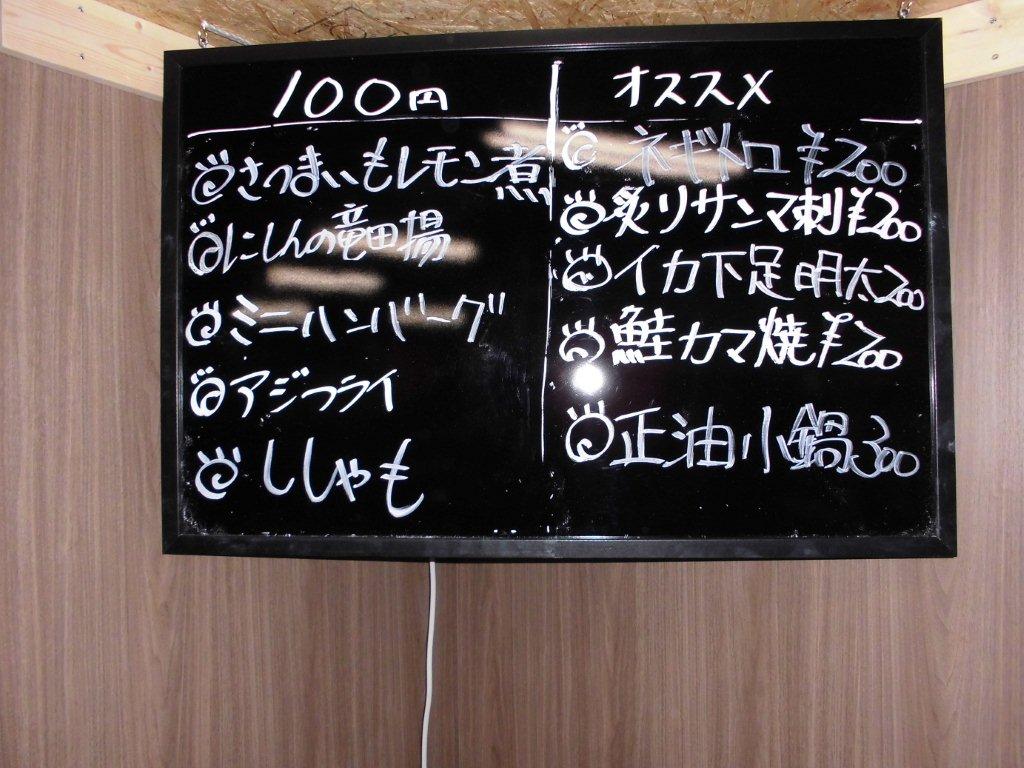 100円
さつまいもレモン煮
にしんの竜田揚
ミニハンバーグ
アジフライ
ししゃも
オススメ
ネギトロ ¥200
炙リサンマ刺¥200
イカ下足明太200
鮭カマ焼¥200
正油小鍋300